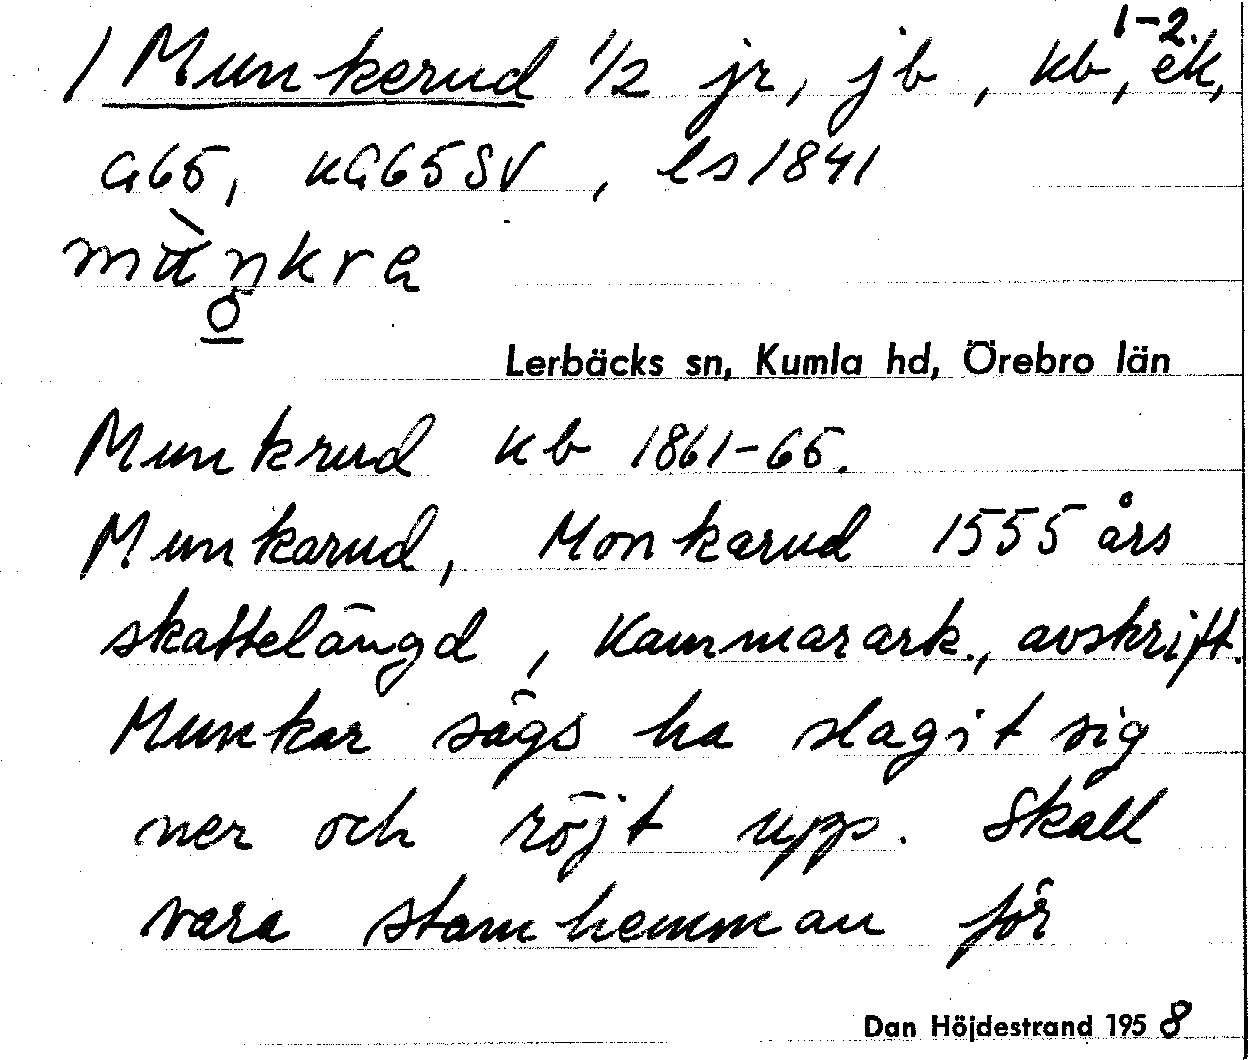 1-2.
/ Munkerud 1/2 jr, jb, kb, ek,
G65, kG65SV, ls 1841
mùŋkra
o
Lerbäcks sn, Kumla hd, Örebro län
Munkrud kb 1861-65.
Munkarud, Monkarud 1555 års
skattelängd, Kammarark., avskrift.
Munkar sägs ha slagit sig
ner och röjt upp. Skall
vara stamhemman för
Dan Höjdestrand 1958